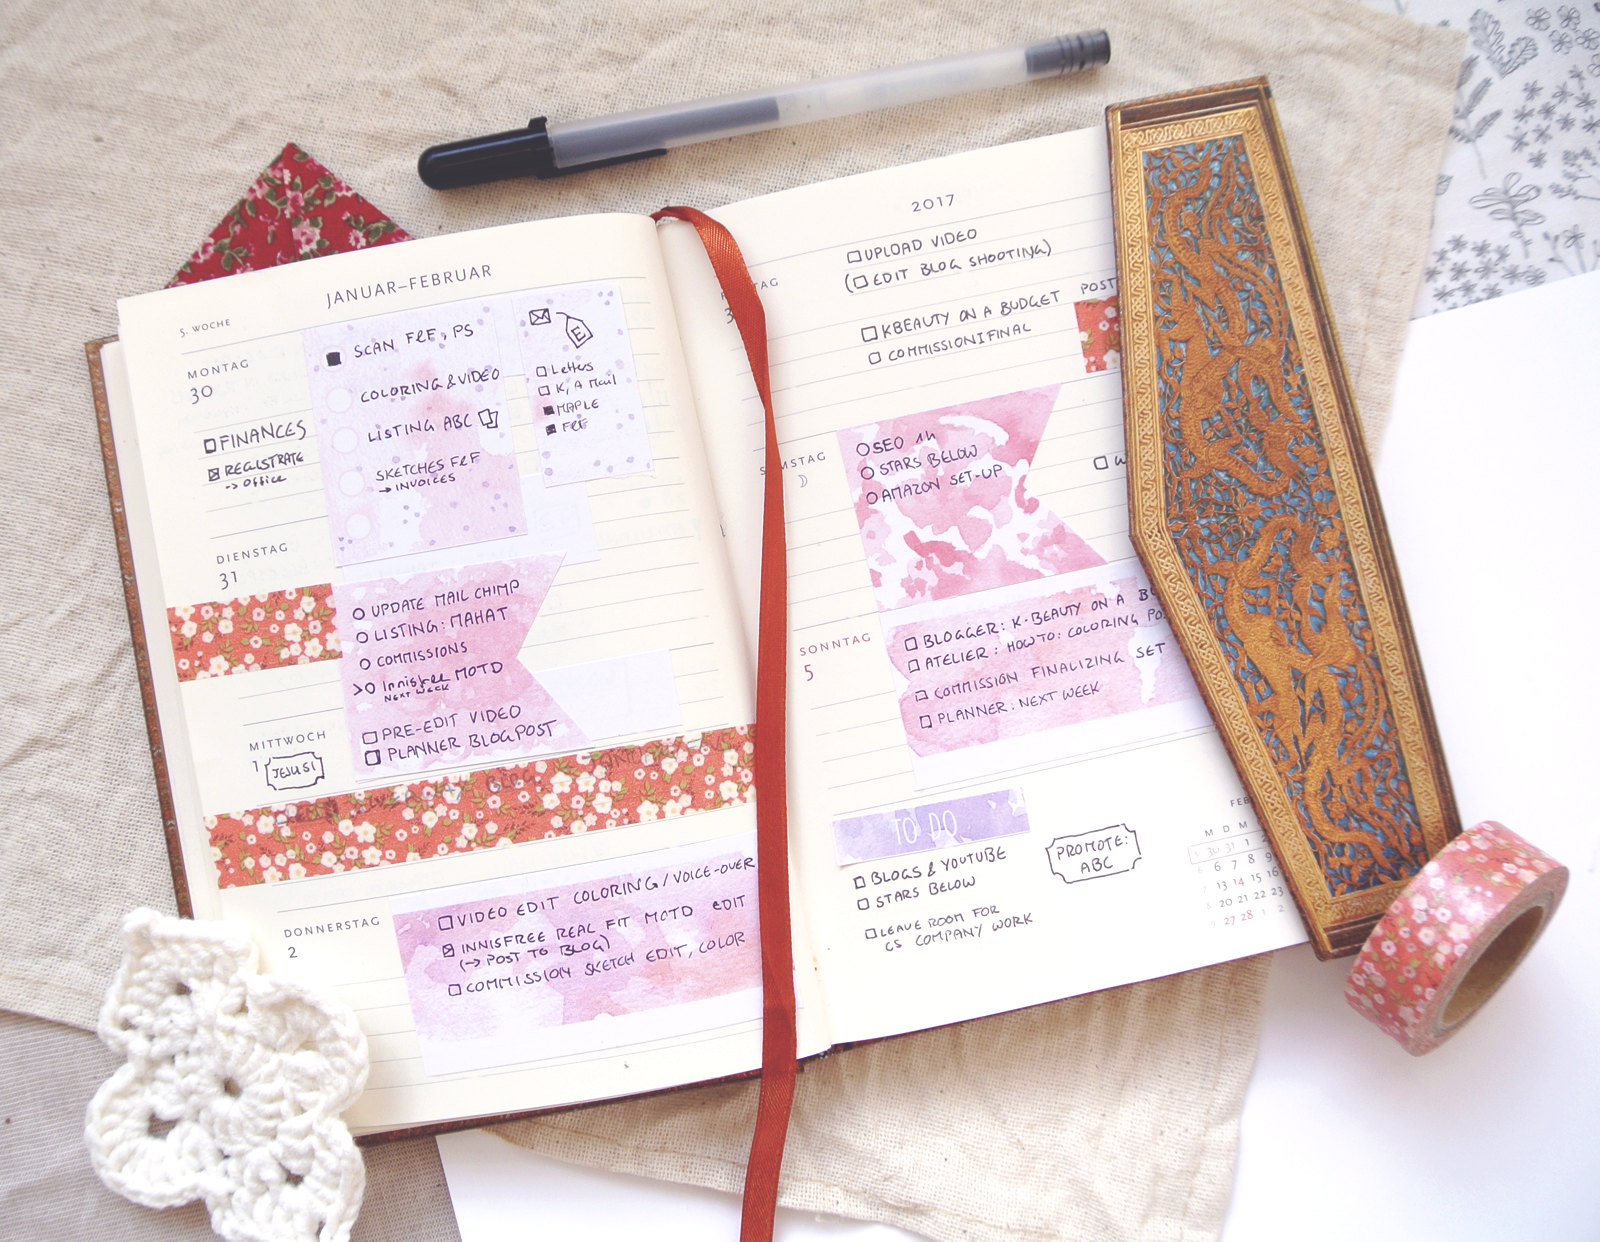 JANUAR–FEBRUAR
5. WOCHE
MONTAG
30
FINANCES
REGISTRATE
-> OFFICE
SCAN FRE, PS
COLORING & VIDEO
LISTING ABC
SKETCHES F&F
→ INVOICES
E
Letters
K, A Mail
MAPLE
FRE
DIENSTAG
31
UPDATE MAIL CHIMP
LISTING: MAHAT
COMMISSIONS
>O Innisfree MOTD
NEXT WEEK
PRE-EDIT VIDEO
PLANNER BLOGPOST
MITTWOCH
1
JESUS!
DONNERSTAG
2
VIDEO EDIT COLORING/VOICE-OVER
INNISFREE REAL FIT MOTD EDIT
(-> POST TO BLOG)
COMMISSION SKETCH EDIT, COLOR
2017
TAG
3
UPLOAD VIDEO
(EDIT BLOG SHOOTING)
KBEAUTY ON A BUDGET
COMMISSION FINAL
POST
SAMSTAG
SEO 1h
STARS BELOW
AMAZON SET-UP
SONNTAG
5
BLOGGER: K-BEAUTY ON A BU
ATELIER: HOWTO: COLORING PO
COMMISSION FINALIZING SET
PLANNER: NEXT WEEK
TO DO
BLOGS & YOUTUBE
STARS BELOW
LEAVE ROOM FOR
CS COMPANY WORK
PROMOTE:
ABC
FEB
M D M
30 31 1 2
6 7 8 9
13 14 15 16
20 21 22 23
27 28 1 2